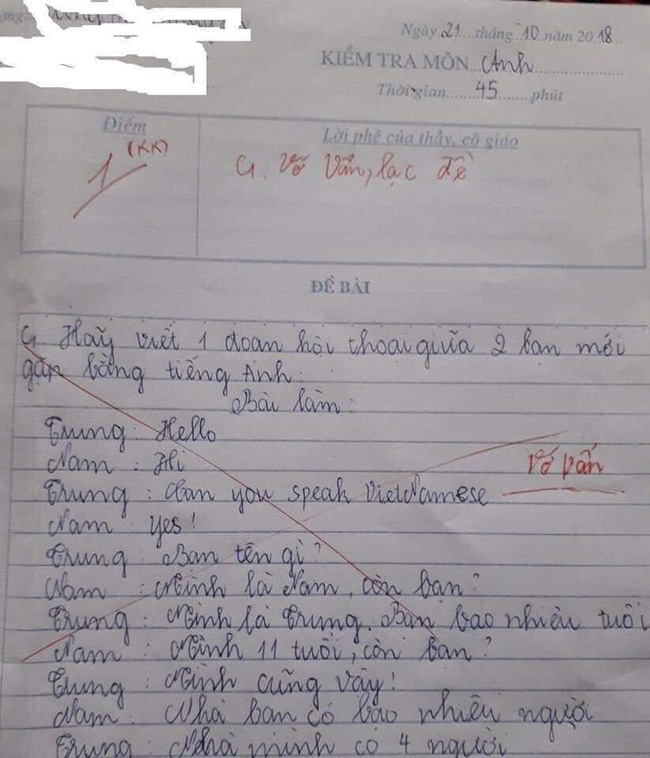 Ngày 21 tháng 10 năm 2018
KIỂM TRA MÔN Anh
Thời gian 45 phút
Điểm
Lời phê của thầy, cô giáo
1 (KK)
G: Vớ Vẩn, lạc đề
ĐỀ BÀI
G Hãy viết 1 đoạn hội thoại giữa 2 bạn mới
gặp bằng tiếng Anh.
Bài làm:
Trung: Hello
Nam: Hi
Vớ vẩn
Trung: Can you speak VietNamese
Nam: Yes!
Trung: Bạn tên gì?
Nam: Mình là Nam, còn bạn?
Trung: Mình là Trung. Bạn bao nhiêu tuổi
Nam: Mình 11 tuổi, còn bạn?
Trung: Mình cũng vậy!
Nam: Nhà bạn có bao nhiêu người
Trung: Nhà mình có 4 người